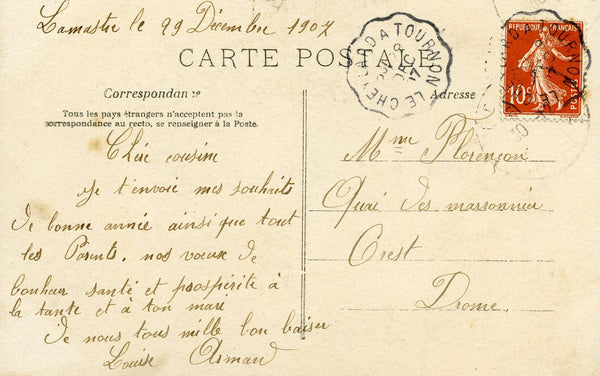 Lamastre le 29 Décembre 1907
CARTE POSTALE
LE CHEYLARD A TOURNON
Correspondance
Adresse
Tous les pays étrangers n'acceptent pas la
correspondance au recto, se renseigner à la Poste.
10c
POSTES
Chère cousine
Je t'envoie mes souhaits
de bonne année ainsi que tout
les Parents, nos vœux de
bonheur santé et prospérité à
la tante et à ton mari
de nous tous mille bon baiser
Louise Armand
Mme Florençon
Quai des marronnier
Crest
Drome